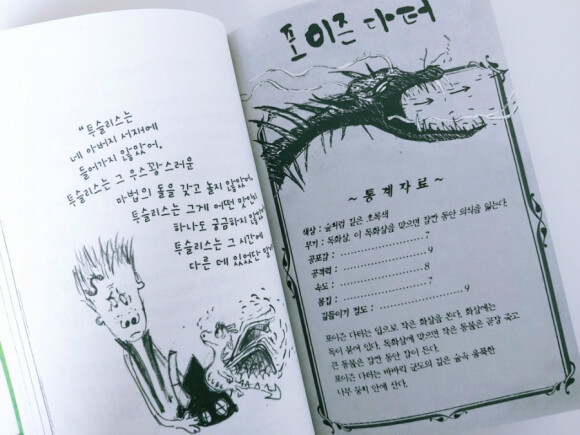 “투슬리스는
네 아버지 서재에
들어가지 않았어,
투슬리스는 그 우스꽝스러운
마법의 돌을 갖고 놀지 않았
투슬리스는 그게 어떤
하나도 궁금하지
투슬리스는 그 시간에
다른 데 있었단
포이즌 다터
~ 통계자료 ~
색상 : 숲처럼 짙은 초록색
무기 : 독화살, 이 독화살을 맞으면 잠깐 동안 의식을 잃는다.
공포감 : .................... 7
공격력 : .................... 9
속도 : .................... 8
몸집 : .................... 7
길들이기 정도 : .................... 9
포이즌 다터는 입으로 작은 화살을 쏜다. 화살에는
독이 묻어 있다. 독화살에 맞으면 작은 동물은 금방 죽고
큰 동물은 잠깐 동안 잠이 든다.
포이즌 다터는 바바리 군도의 깊은 숲속 움푹한
나무 둥치 안에 산다.